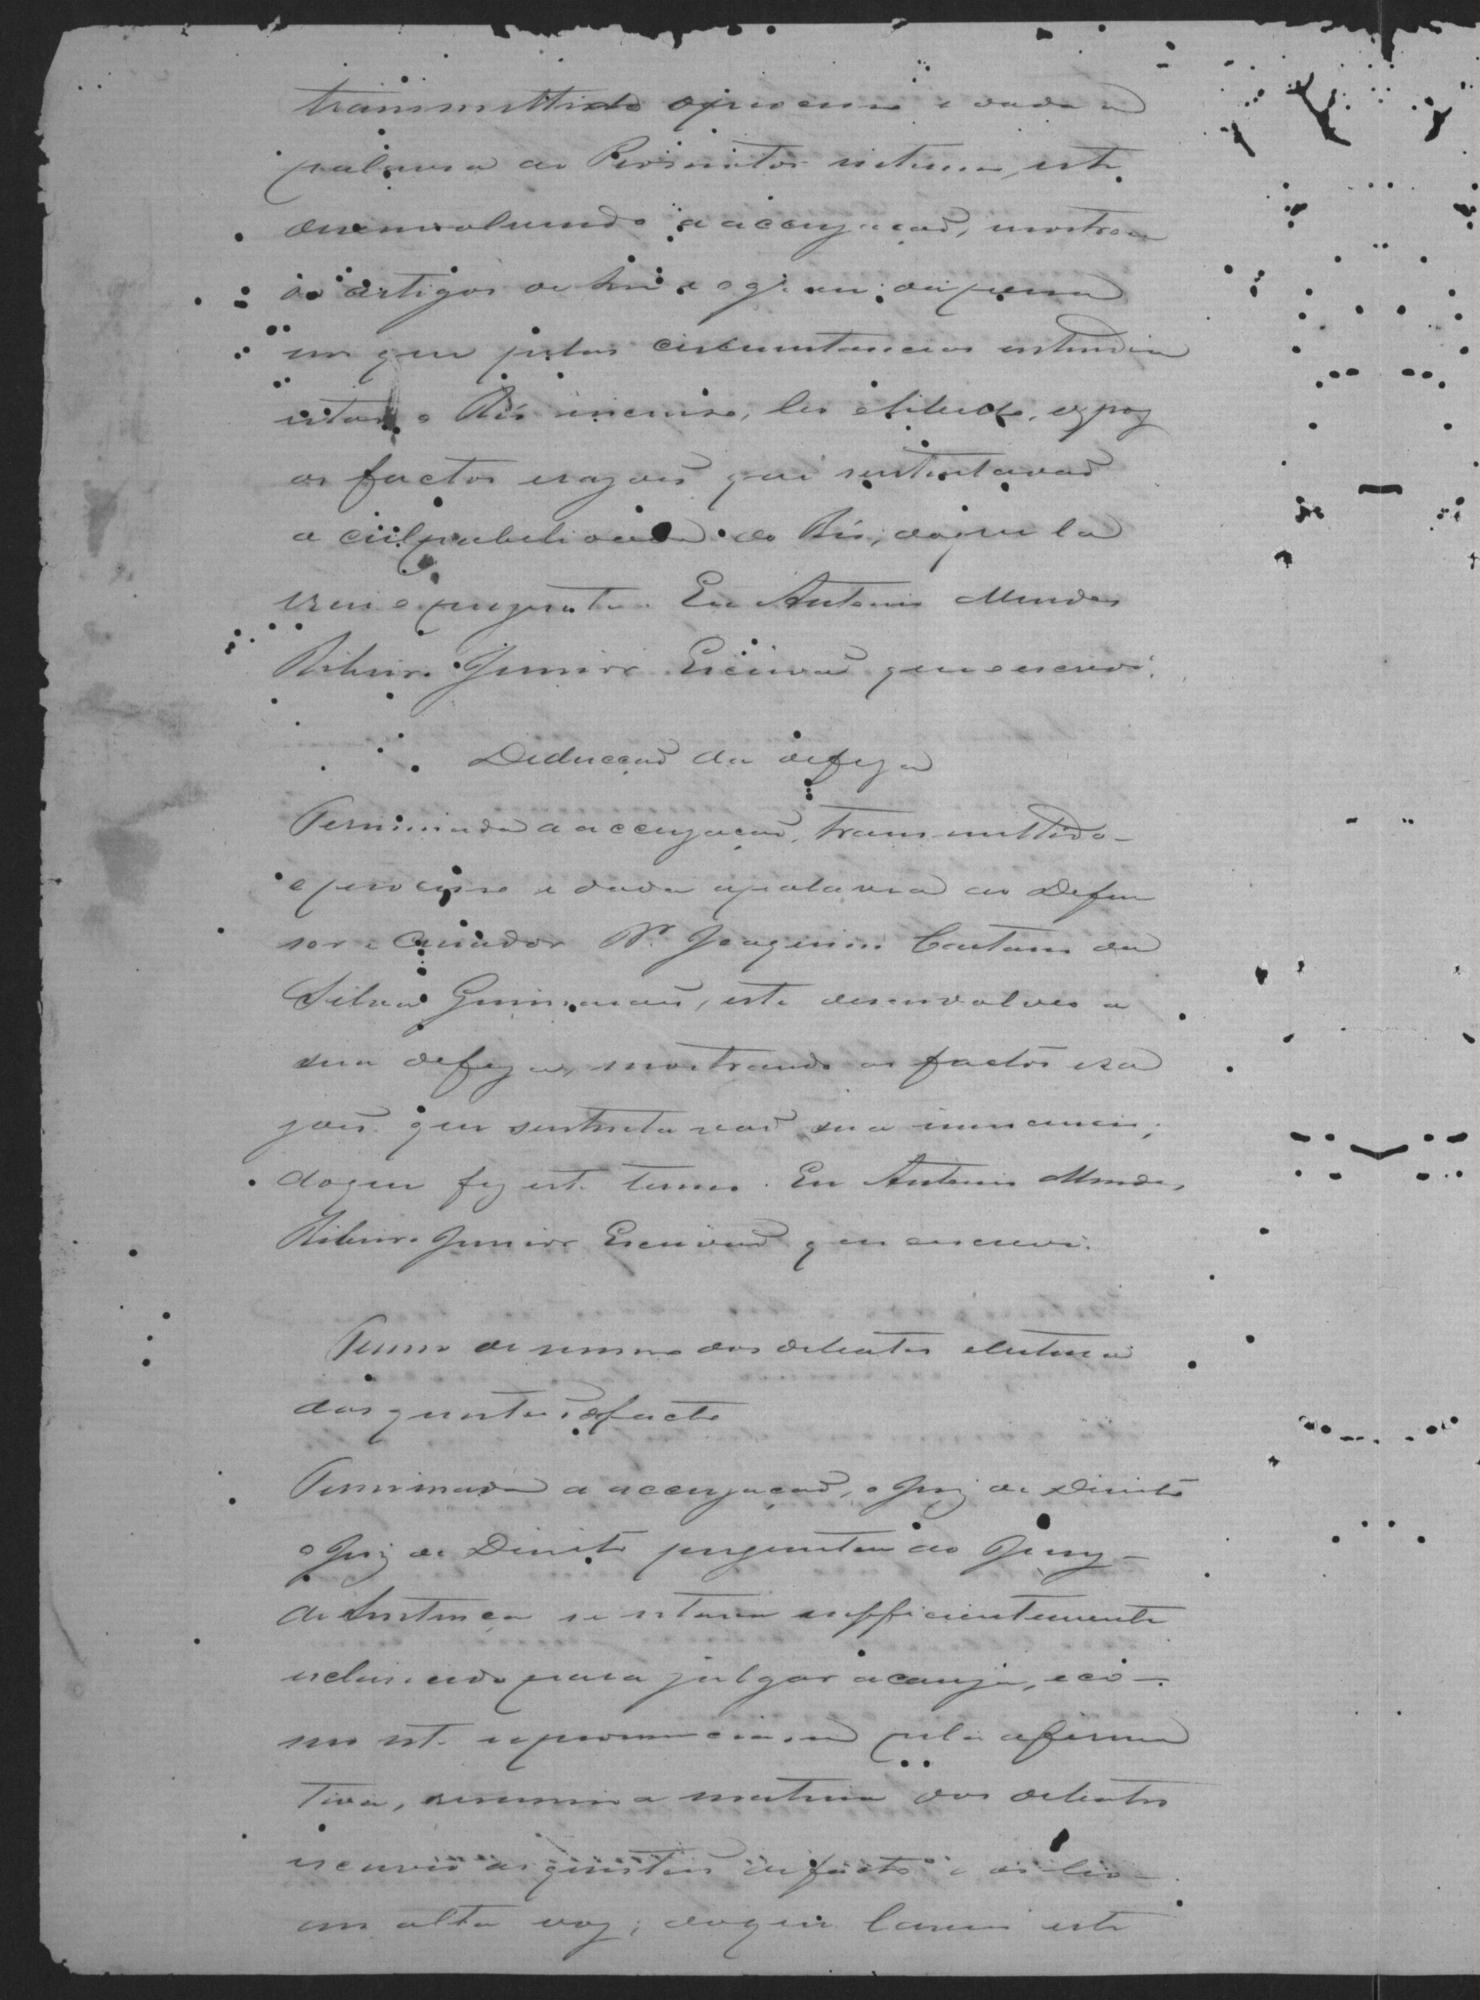 transmittido o processo e dada a
palavra ao Promotor interino, este
desenvolvendo a accuzaçaõ, mostrou
os artigos da Lei e o gráu da pena
em que pelas circumstancias entendia
estar o Réo incurso, leu o libello, expoz
os factos e razoẽs que sustentavaõ
a culpabilidade do Réo; do que la
vrei o prezente. Eu Antonio Mendes
Ribeiro Junior Escrivaõ que o escrevi.
Deducçaõ da defeza
Terminada a accuzaçaõ, transmittido
o processo e dada a palavra ao Defen
sor e Curador Dr. Joaquim Caetano da
Silva Guimaraẽs, este desenvolveo a
sua defeza, mostrando os factos e ra
zoẽs que sustentavaõ sua innocencia;
do que fiz este termo. Eu Antonio Mendes
Ribeiro Junior Escrivaõ que o escrevi.
Termo de resumo dos debates e leitura
das questoẽs de facto
Terminada a accuzaçaõ, o Juiz de Direito
o Juiz de Direito perguntou ao Jury
de Sentença se estava sufficientemente
esclarecido para julgar a cauza, e co-
mo este se pronunciasse pela afirma
tiva, resumio a materia dos debates
escreveo as questoẽs de facto e as leo
em alta voz; do que lavrei este